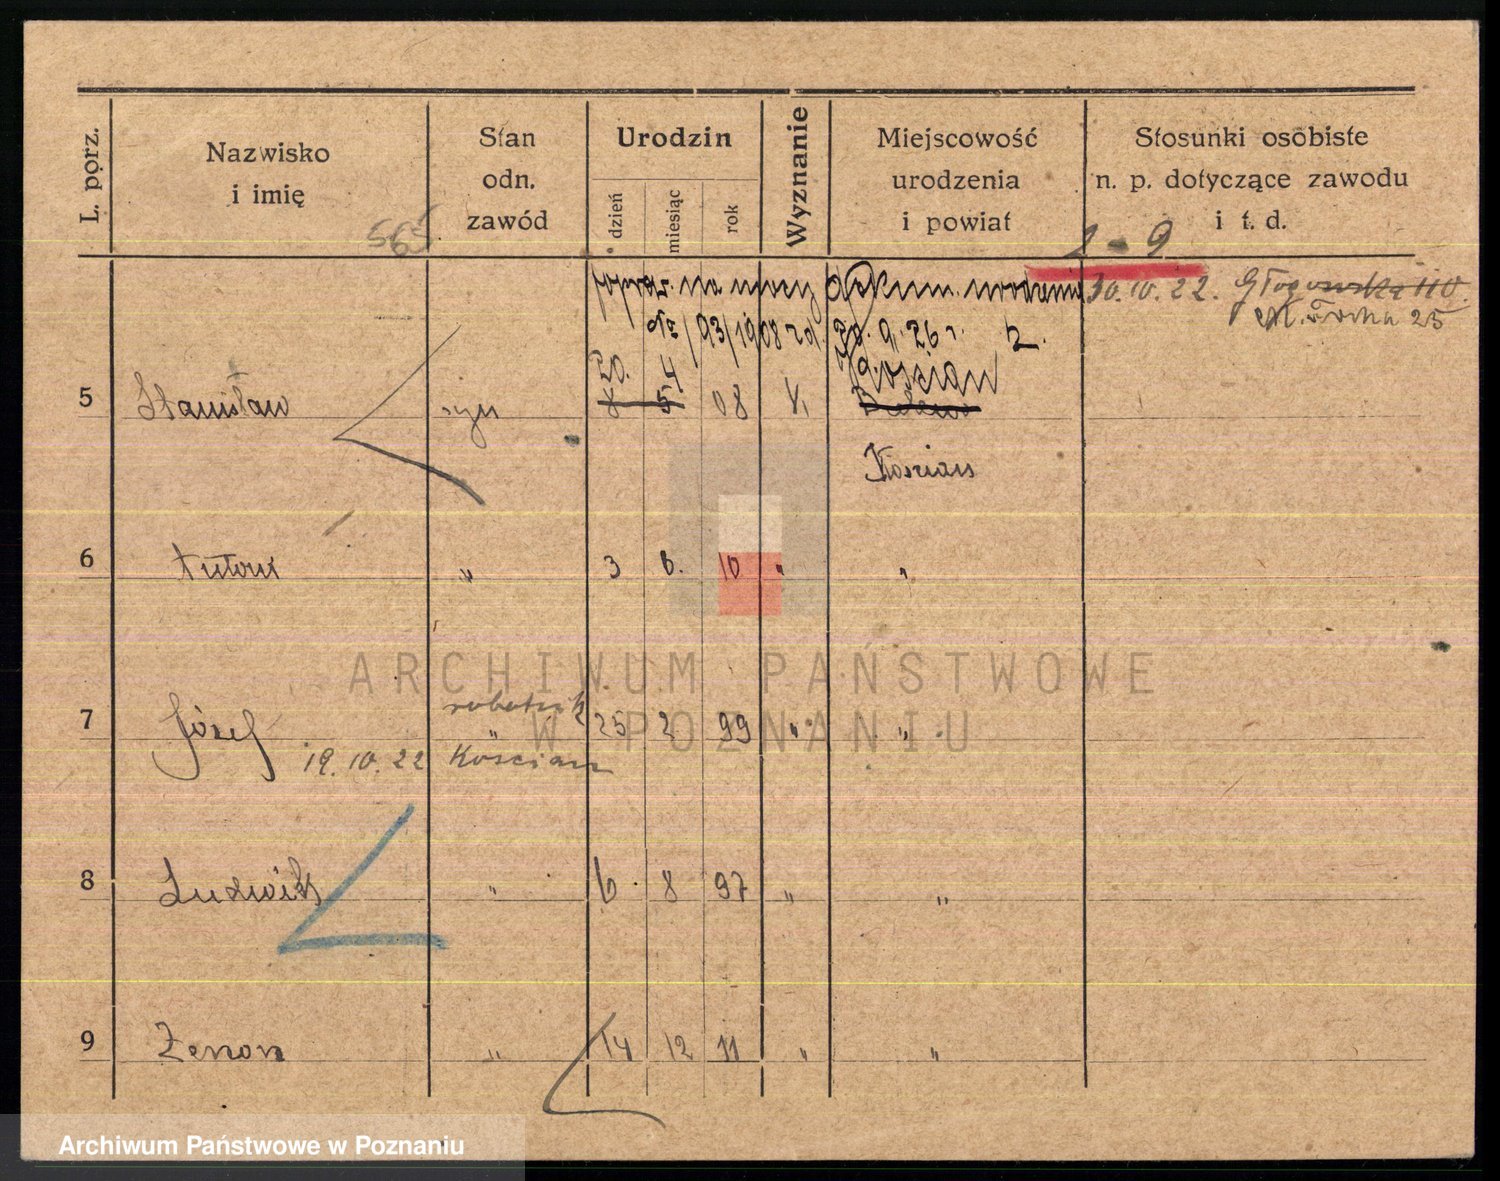 L. porz.
Nazwisko i imię
Stan odn. zawód
Urodzin
dzień
miesiąc
rok
Wyznanie
Miejscowość urodzenia i powiat
Stosunki osobiste n. p. dotyczące zawodu i t. d.
565
2-9
na mocy dokum. urodzenia
30.10.22. Głogowska 110.
93/1908 20.9.26 r.
25
20. 4
Kościan
5 Stanisław syn 8 5 08 k
Kościan
6 Antoni " 3 6. 10 " "
robotnik
7 Józef " 25 2 99 " "
19.10.22 Kościan
8 Ludwik " 6 8 97 " "
9 Zenon " 14 12 11 " "
ARCHIWUM PAŃSTWOWE
W POZNANIU
Archiwum Państwowe w Poznaniu